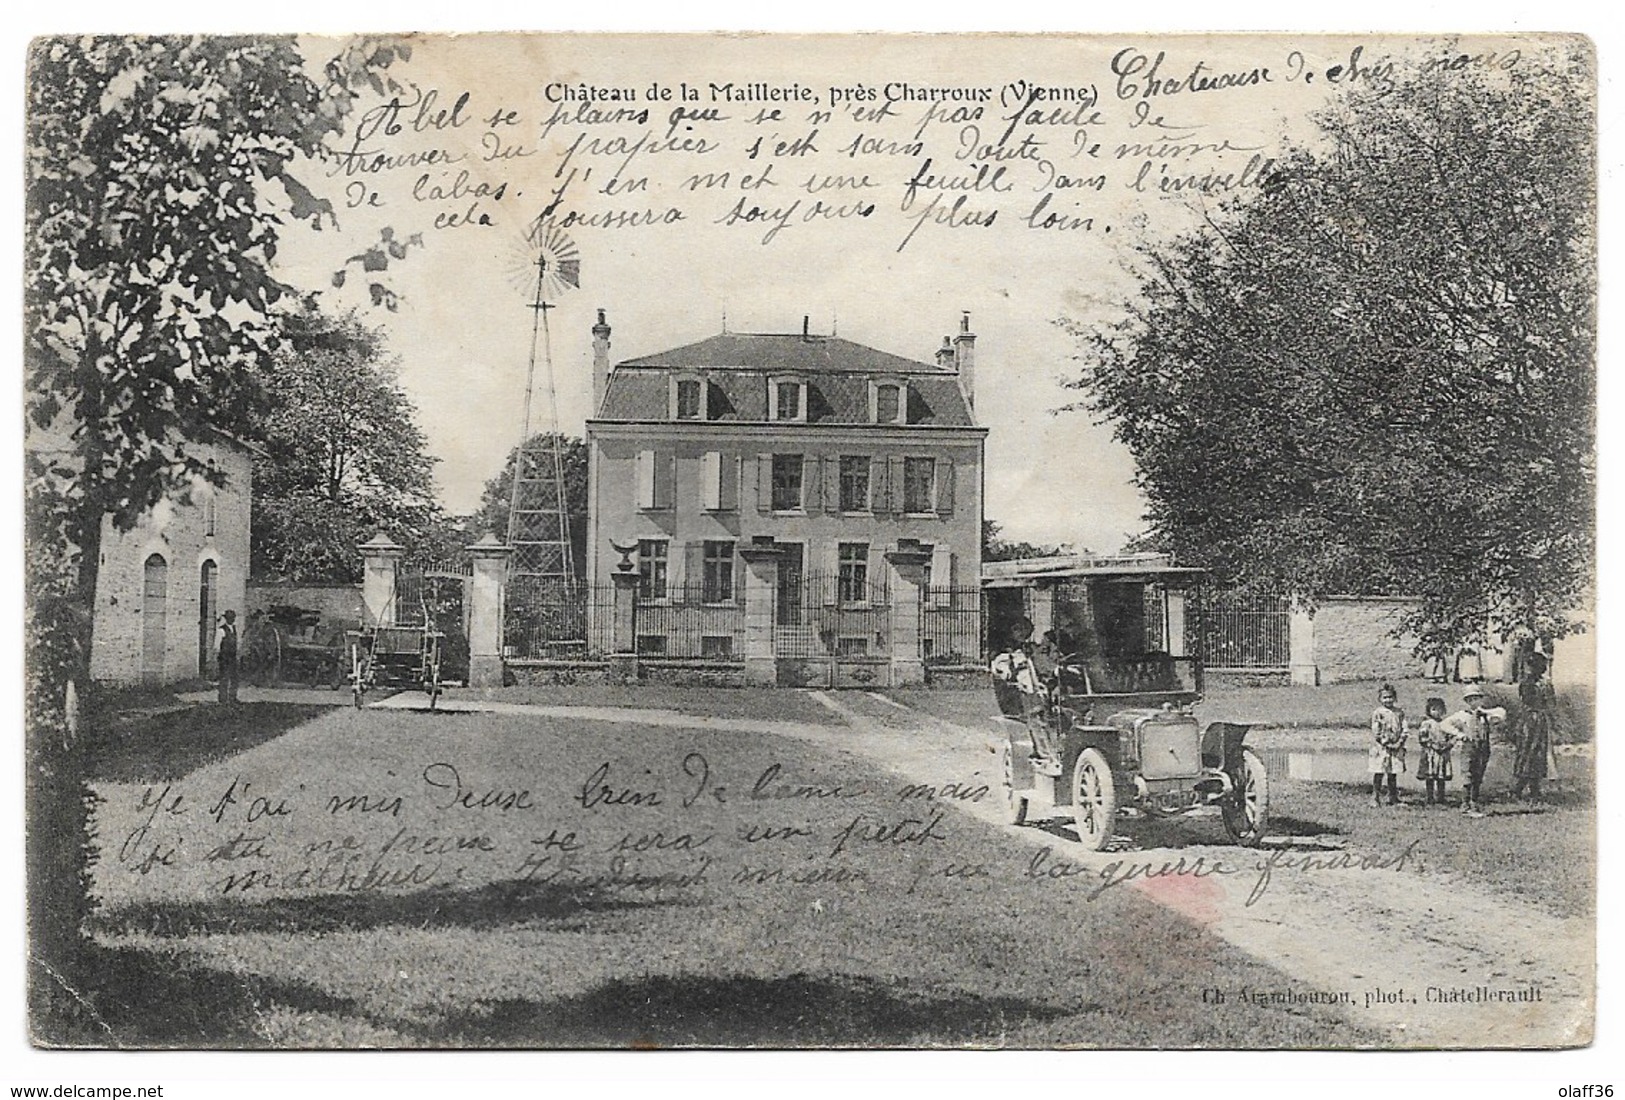 Château de la Maillerie, près Charroux (Vienne)
Chateause de chez nous
Abel se plains que se n'est pas faute de
trouver du papier s'est sans doute de même
de labas. J'en met une feuille dans l'envelle
cela poussera soujours plus loin.
Je t'ai mis deuse brin de laine mais
si tu ne peuse se sera un petit
malheur. Il vaudrait mieux que la guerre finirait.
Ch Arambourou, phot., Châtellerault
olaff36